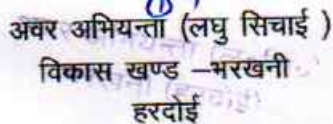 अवर अभियन्ता (लघु सिचाई )
विकास खण्ड –भरखनी
हरदोई